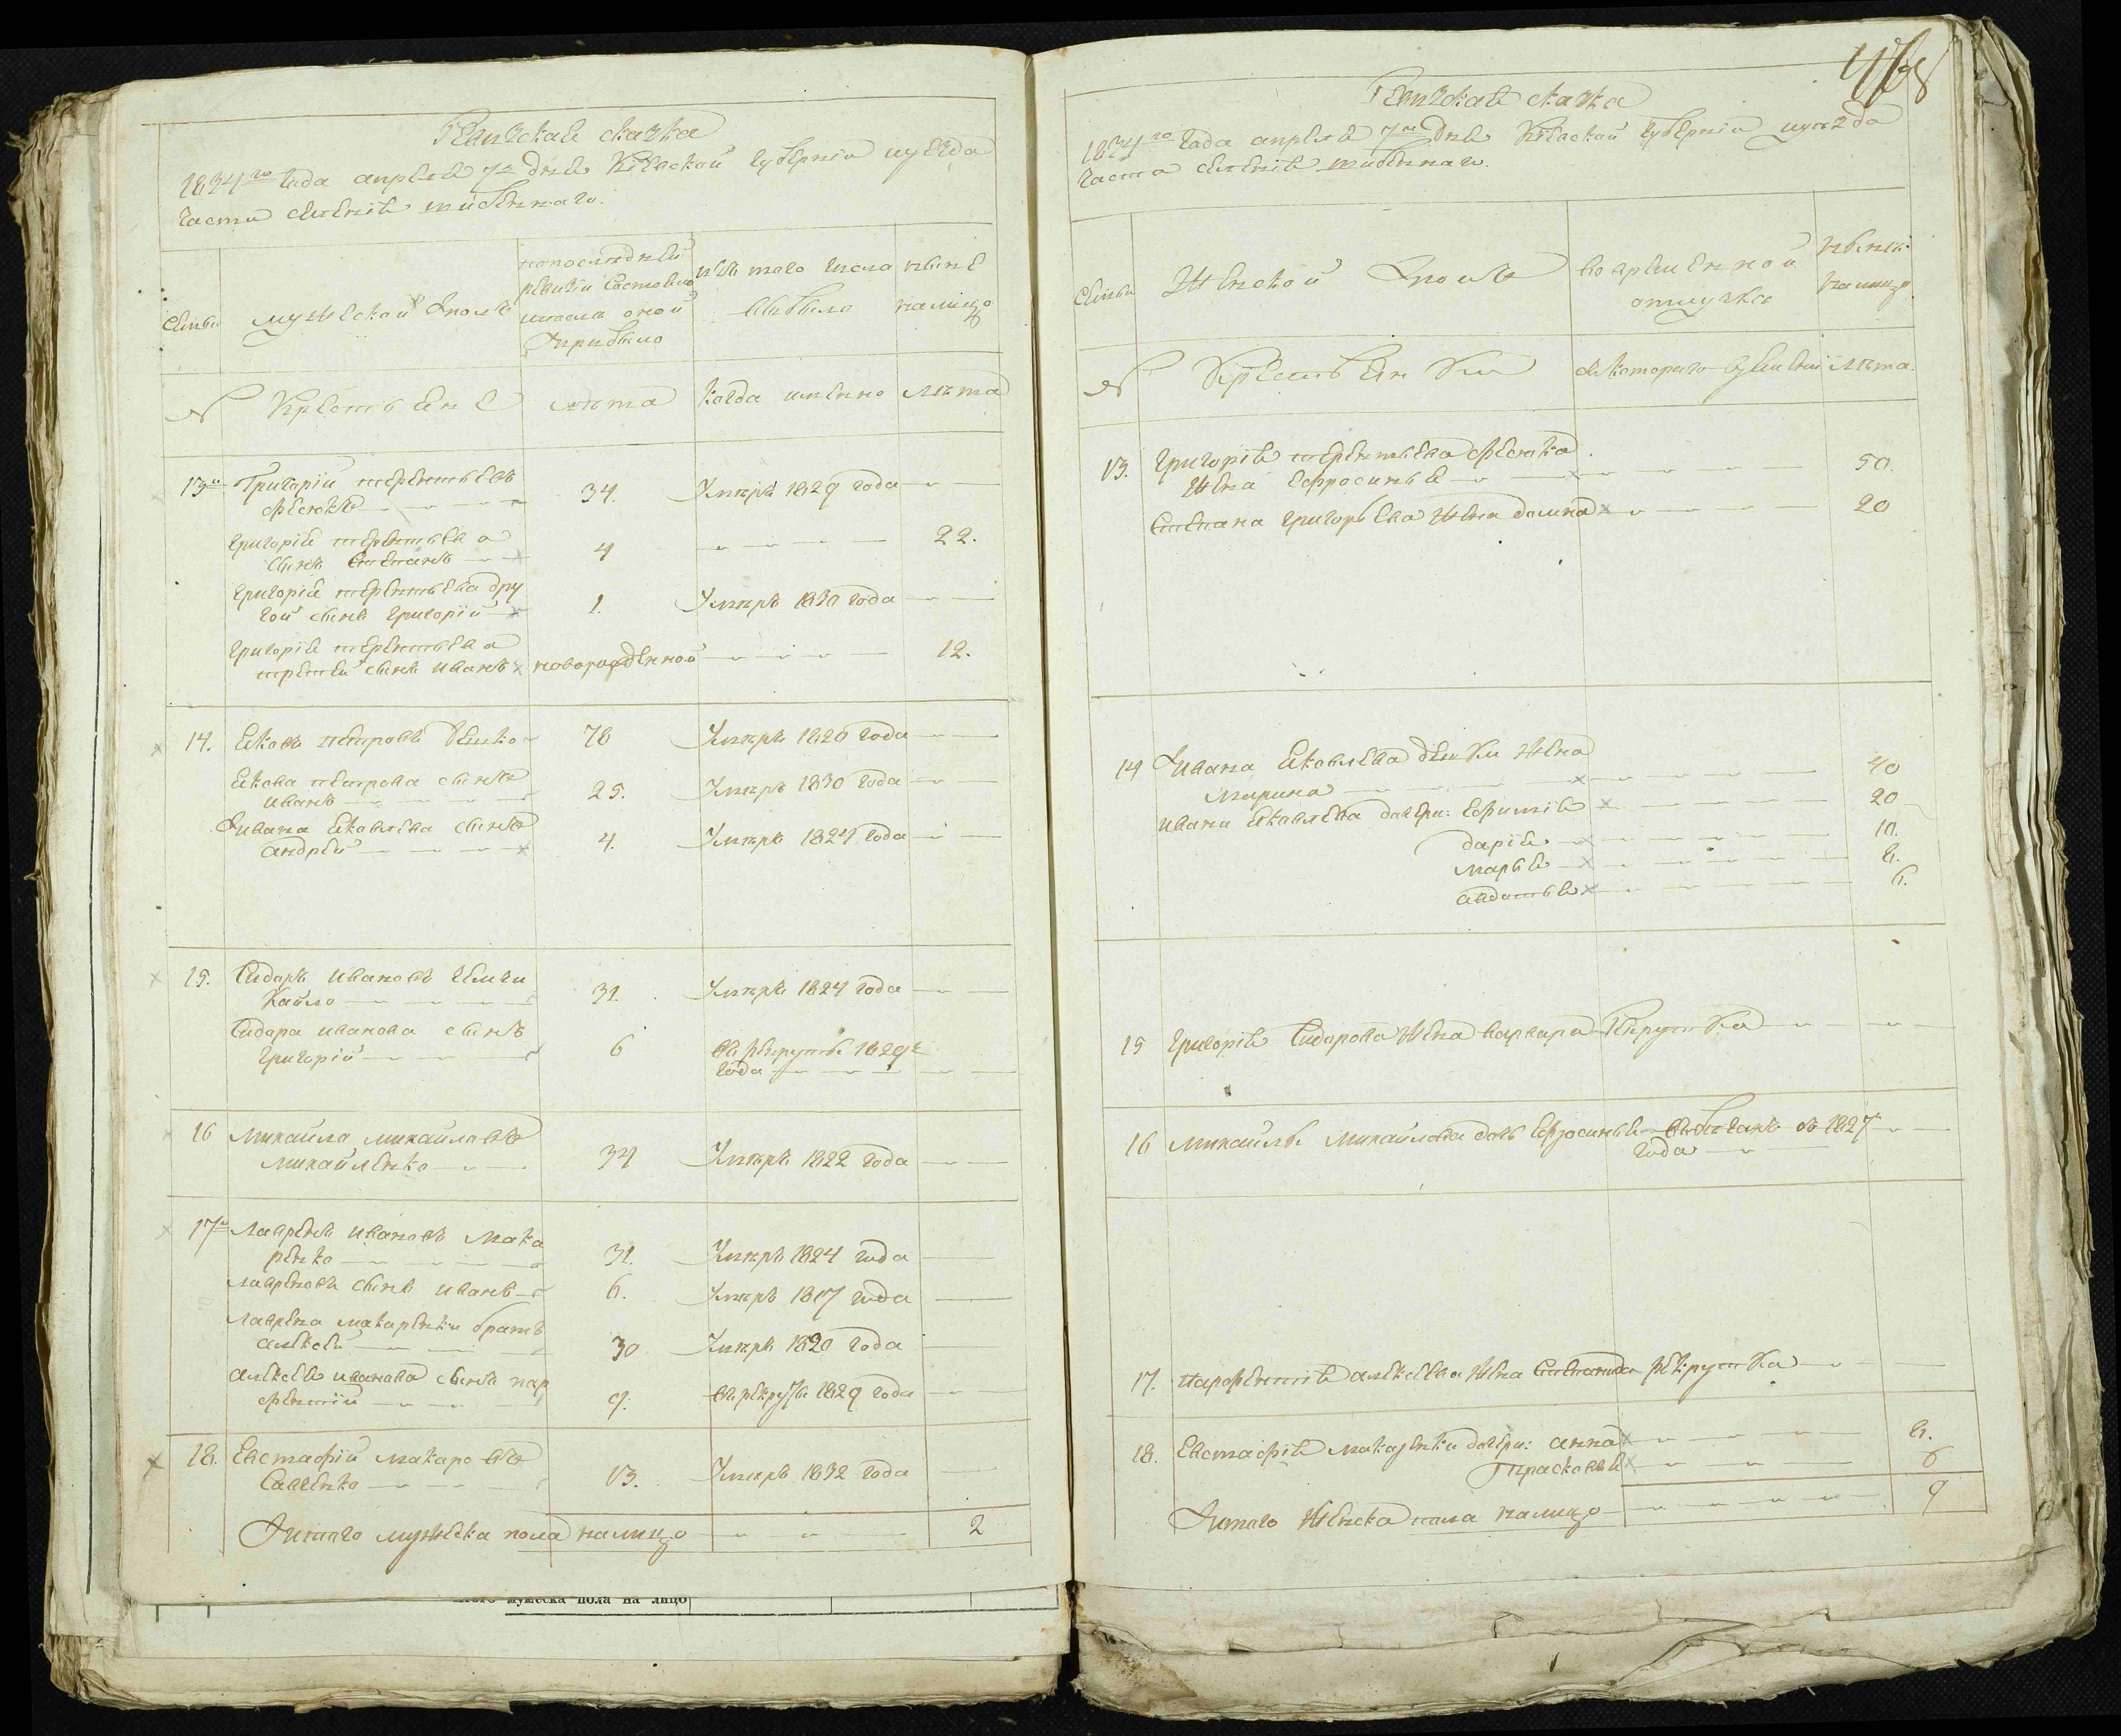 Ревизская сказка
1834го года апреля 7го дня Кіевской губерніи уезда
части селенія
Семьи
мужеской полъ
по последней
ревизіи состояло
и после оной
прибыло
изъ того числа
выбыло
ныне
налицо
№
Крестьяне
лѣта
когда именно
лѣта
13й
Григорій терентьевъ
34.
Умеръ 1829 года
Григорія терентьева
сынъ Степанъ
4
22.
Григорія терентьева дру
гой сынъ Григорій
1.
Умеръ 1830 года
Григорія терентьева
третій сынъ иванъ
новорожденной
12.
14.
Яковъ петровъ
78
Умеръ 1820 года
Якова петрова сынъ
иванъ
25.
Умеръ 1830 года
Ивана Яковлева сынъ
андрей
4.
Умеръ 1824 года
15.
Сидоръ ивановъ
31.
Умеръ 1824 года
Сидора иванова сынъ
григорій
6
въ рекруты 1829
года
16
михайло михайловъ
михайленко
34
Умеръ 1822 года
17й
лавренъ ивановъ мака
ренко
31.
Умеръ 1824 года
лавреновъ сынъ иванъ
6.
Умеръ 1817 года
лаврена макаренка братъ
алексей
30
Умеръ 1820 года
алексея иванова сынъ пар
фентій
9.
въ рекруты 1829 года
18.
Евстафій макаровъ
Савченко
13.
Умеръ 1832 года
Итого мужеска пола налицо
2
мужеска пола на лицо
Ревизская сказка
1834го года апреля 7го дня Кіевской губерніи уезда
части селенія
Семьи
Женской полъ
во временной
отлучке
ныне
налицо
№
Крестьянки
съ котораго времени
лѣта.
13.
Григорія терентьева
жена ефросинья
50.
Степана григорьева жена домна
20
14
Ивана Яковлева жена
марина
40
ивана Яковлева дочери: ефимія
20
дарія
10.
марья
8.
авдотья
6.
15
Григорія Сидорова жена варвара
рекрутка
16
михайлы михайлова дочь ефросинья
въ 1827
года
17.
парфентія алексеева жена степанида рекрутка
18.
Евстафія макаренка дочери: анна
8.
прасковья
6
Итого женска пола налицо
9